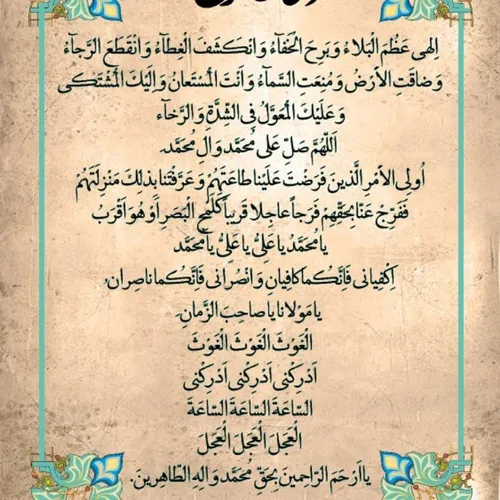 اِلٰهی عَظُمَ الْبَلاءُ وَبَرِحَ الْخَفآءُ وَانْکَشَفَ الْغِطآءُ وَانْقَطَعَ الرَّجآءُ
وَضاقَتِ الاَرْضُ وَمُنِعَتِ السَّمآءُ وَاَنْتَ الْمُسْتَعانُ وَاِلَیْکَ الْمُشْتَکی
وَعَلَیْکَ الْمُعَوَّلُ فِی الشِّدَّةِ وَالرَّخآءِ
اَللّهُمَّ صَلِّ عَلی مُحَمَّد وَالِ مُحَمَّد.
اُولِی الاَمْرِ الَّذینَ فَرَضْتَ عَلَیْنا طاعَتَهُمْ وَعَرَّفْتَنا بِذلِکَ مَنْزِلَتَهُمْ
فَفَرِّجْ عَنّا بِحَقِّهِمْ فَرَجاً عاجِلا قَریباً کَلَمْحِ الْبَصَرِ اَوْ هُوَ اَقْرَبُ
یا مُحَمَّدُ یا عَلِیُّ یا عَلِیُّ یا مُحَمَّد
اِکْفِیانی فَاِنَّکُما کافِیانِ وَانْصُرانی فَاِنَّکُما ناصِران.
یا مَوْلانا یا صاحِبَ الزَّمانِ.
الْغَوْثَ الْغَوْثَ الْغَوْثَ
اَدْرِکْنی اَدْرِکْنی اَدْرِکْنی
السّاعَةَ السّاعَةَ السّاعَةَ
الْعَجَلَ الْعَجَلَ الْعَجَل
یا اَرْحَمَ الرّاحِمینَ بِحَقِّ مُحَمَّد وَالِهِ الطّاهِرینَ.